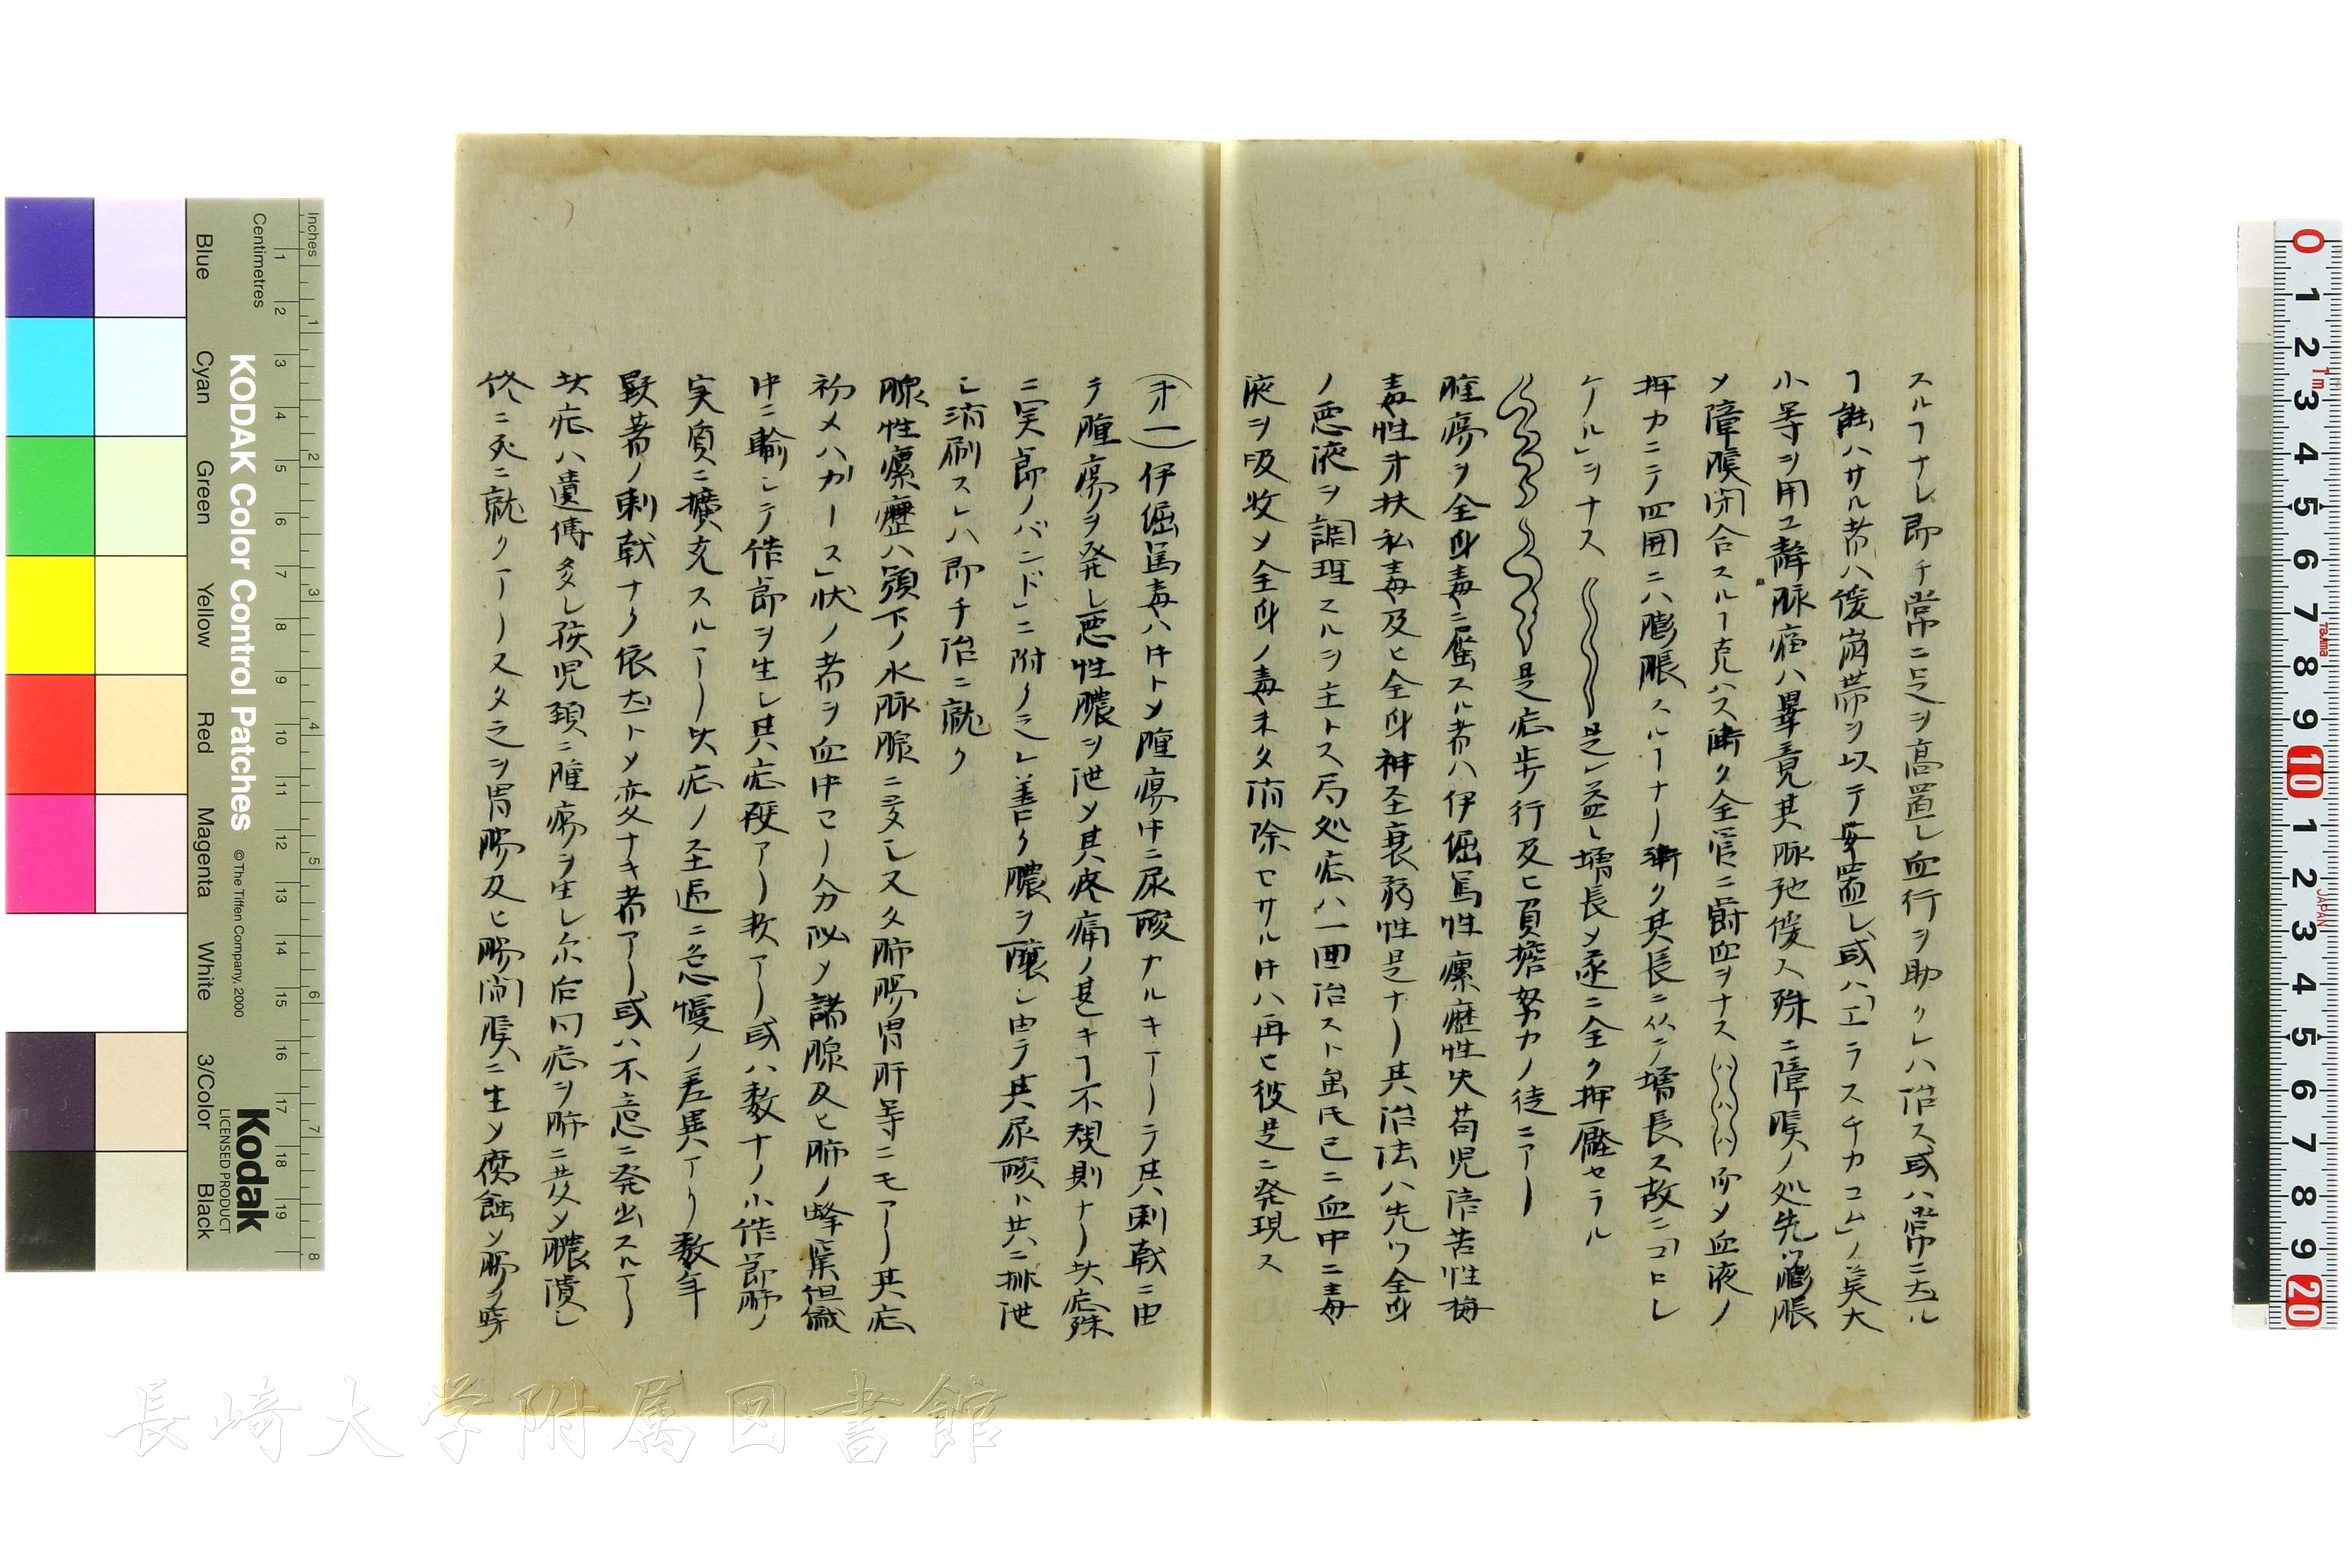 スルヿナレ即チ常ニ足ヲ高置シ血行ヲ助クレハ治ス或ハ常ニ大ル
ヿ能ハサル者ハ緩崩帯ヲ以テ安置シ或ハ「エラスチカコム」ノ莫大
小等ヲ用ユ静脉瘤ハ畢竟其脉弛緩ス殊ニ障膜ノ処先ツ膨脹
メ障膜閉合スルヿ克ハス漸ク全管ニ欝血ヲナス 而メ血液ノ
押力ニテ四囲ニハ膨脹スルヿナー漸ク其長ニ从テ増長ス故ニ「コロレ
ケール」ヲナス 是レ益〻増長メ遂ニ全ク押壓セラル
是症歩行及ヒ負擔努力ノ徒ニアー
腫瘍ヲ全身毒ニ属スル者ハ伊偪篤性瘰癧性失苟児陪苦性梅
毒性オ扶私毒及ヒ全身神圣衰弱性是ナー其治法ハ先ツ全身
ノ悪液ヲ調理スルヲ主トス局処症ハ一畨治スト虽氏已ニ血中ニ毒
液ヲ吸收メ全身ノ毒未タ消除セサル内ハ再ヒ彼是ニ発現ス
(オ一)伊偪篤毒ハ中トメ腫瘍中ニ尿酸ナルキアーテ其刺戟ニ由
テ腫瘍ヲ発シ悪性膿ヲ泄メ其疼痛ノ甚キヿ不規則ナー此症殊
ニ実節ノバンド」ニ附クミレ善ク膿ヲ釀シ由テ其尿酸ト共ニ排泄
シ消刷スレハ即チ治ニ就ク
腺性瘰癧ハ頸下ノ水脉腺ニ発シ又タ肺腸胃肝等ニモアー其症
初メハガース」状ノ者ヲ血中ヨー分泌メ諸腺及ヒ肺ノ蜂窠組織
中ニ輸シテ結節ヲ生シ其症硬アー軟アー或ハ数十ノ小結節肺ノ
実質ニ擴充スルアー此症ノ圣過ニ急慢ノ差異アリ数年
顕著ノ刺戟ナク依然トメ変ナキ者アー或ハ不意ニ発出スルアー
此症ハ遺傳多シ孩児頸ニ腫瘍ヲ生シ尓后同症ヲ肺ニ発メ膿潰シ
終ニ死ニ就クアー又タ之ヲ胃腸及ヒ腸間膜ニ生メ腐蝕シ腸ヲ穿
長崎大学附属図書館
KODAK Color Control Patches
©The Tiffen Company, 2000
Kodak
LICENSED PRODUCT
Inches
Centimetres
Blue
Cyan
Green
Yellow
Red
Magenta
White
3/Color
Black